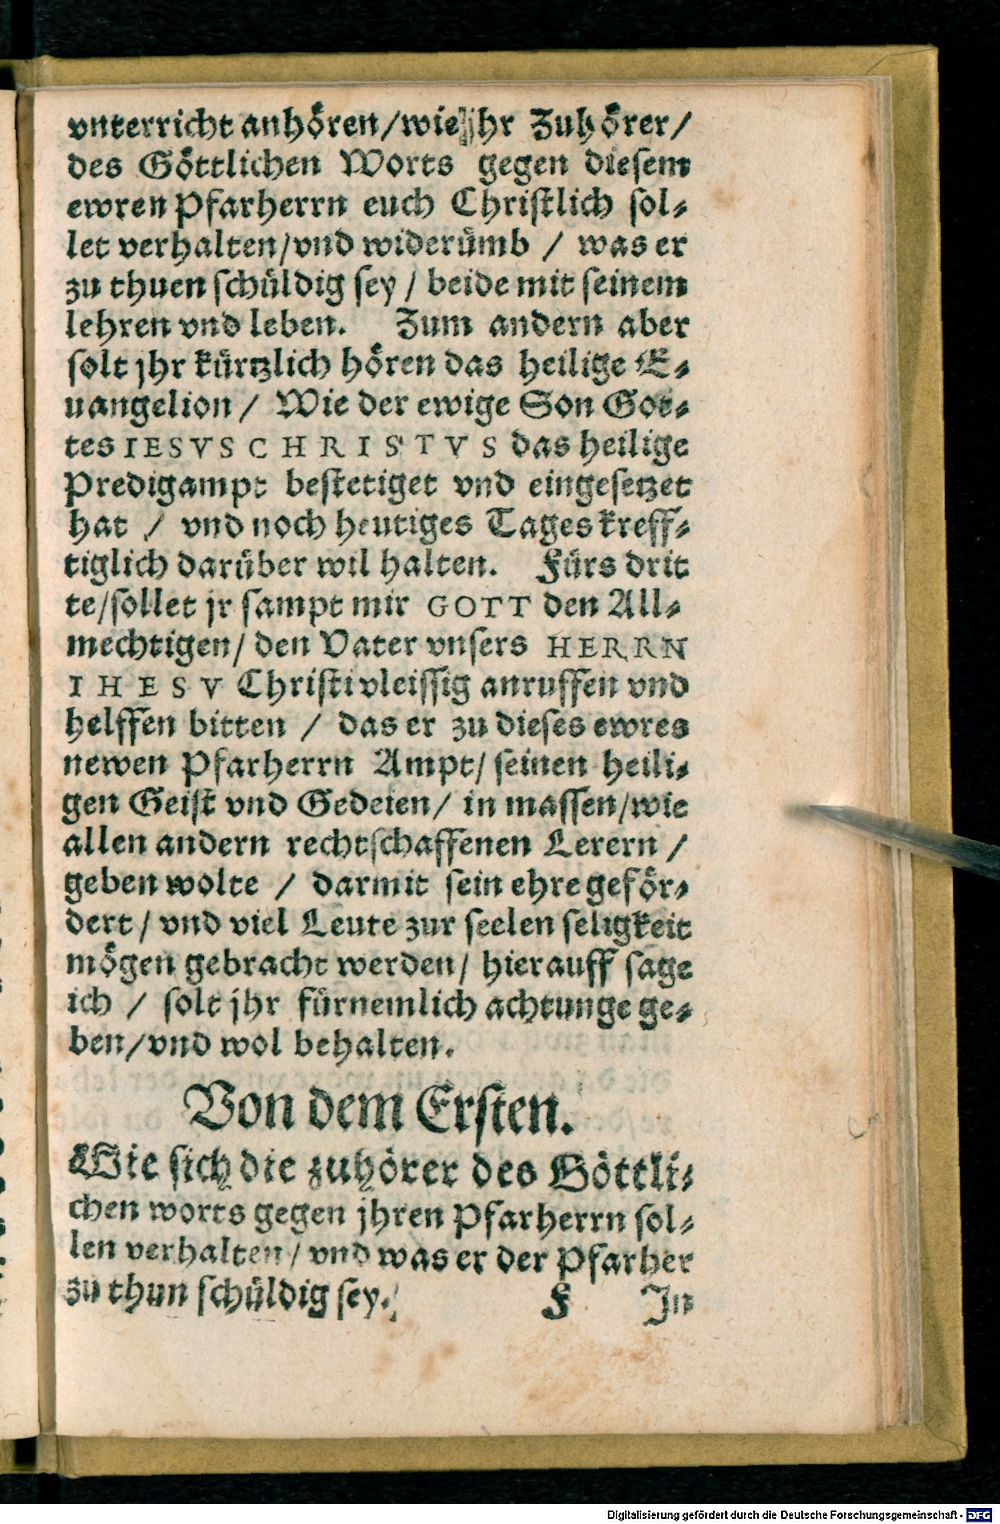 vnterricht anhören/wie jhr Zuhörer/
des Göttlichen Worts gegen diesem
ewren Pfarherrn euch Christlich sol⸗
let verhalten/vnd widerümb / was er
zu thuen schüldig sey / beide mit seinem
lehren vnd leben. Zum andern aber
solt jhr kürtzlich hören das heilige E⸗
uangelion / Wie der ewige Son Got⸗
tes IESVS CHRISTVS das heilige
Predigampt bestetiget vnd eingesetzet
hat / vnd noch heutiges Tages kreff⸗
tiglich darüber wil halten. Fürs drit
te/sollet jr sampt mir GOTT den All⸗
mechtigen/ den Vater vnsers HERRN
IHESV Christi vleissig anruffen vnd
helffen bitten / das er zu dieses ewres
newen Pfarherrn Ampt/ seinen heili⸗
gen Geist vnd Gedeien/ in massen/wie
allen andern rechtschaffenen Lerern /
geben wolte / darmit sein ehre geför⸗
dert/ vnd viel Leute zur seelen seligkeit
mögen gebracht werden/ hierauff sage
ich / solt jhr fürnemlich achtunge ge⸗
ben/vnd wol behalten.
Von dem Ersten.
Wie sich die zuhörer des Göttli⸗
chen worts gegen jhren Pfarherrn sol⸗
len verhalten/ vnd was er der Pfarher
zu thun schüldig sey. F In
Digitalisierung gefördert durch die Deutsche Forschungsgemeinschaft - DFG